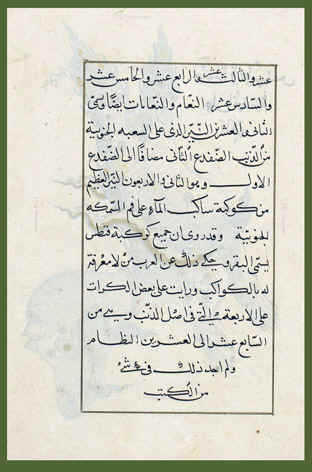 عشر والثالث عشر والرابع عشر والخامس عشر
والسادس عشر النعام والنعامات ايضا ويسمى
الثانى والعشرين النير الذى على الشعبه الجنوبية
من الذنب الضفدع الثانى مضافا الى الضفدع
الاول وهو الثانى والاربعون النير العظيم
من كوكبة ساكب الماء على فم السمكه
الجنوبية وقد روى ان جميع كوكبة قطس
يسمى البقر ويحكى ذلك عن العرب من لا معرفة
له بالكواكب ورايت على بعض الكرات
على الاربعة التى فى اصل الذنب وهى من
السابع عشر الى العشرين النظام
ولم اجد ذلك فى شئ
من الكتب